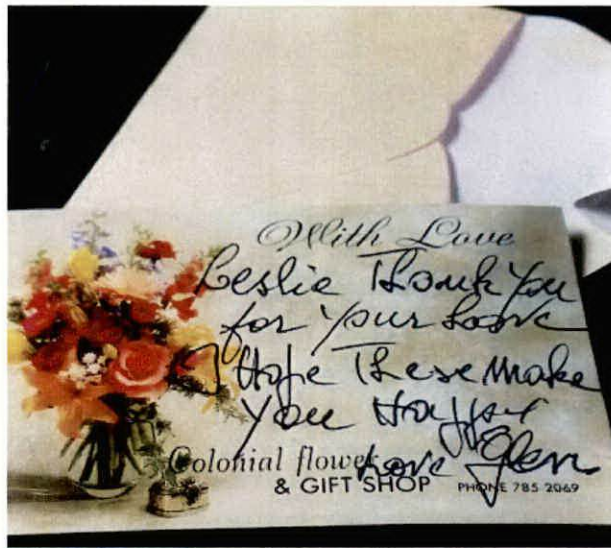 With Love
Leslie Thank You
for your Love
I Hope These make
you Happy
Love Glen
Colonial flower
& GIFT SHOP PHONE 785 2069